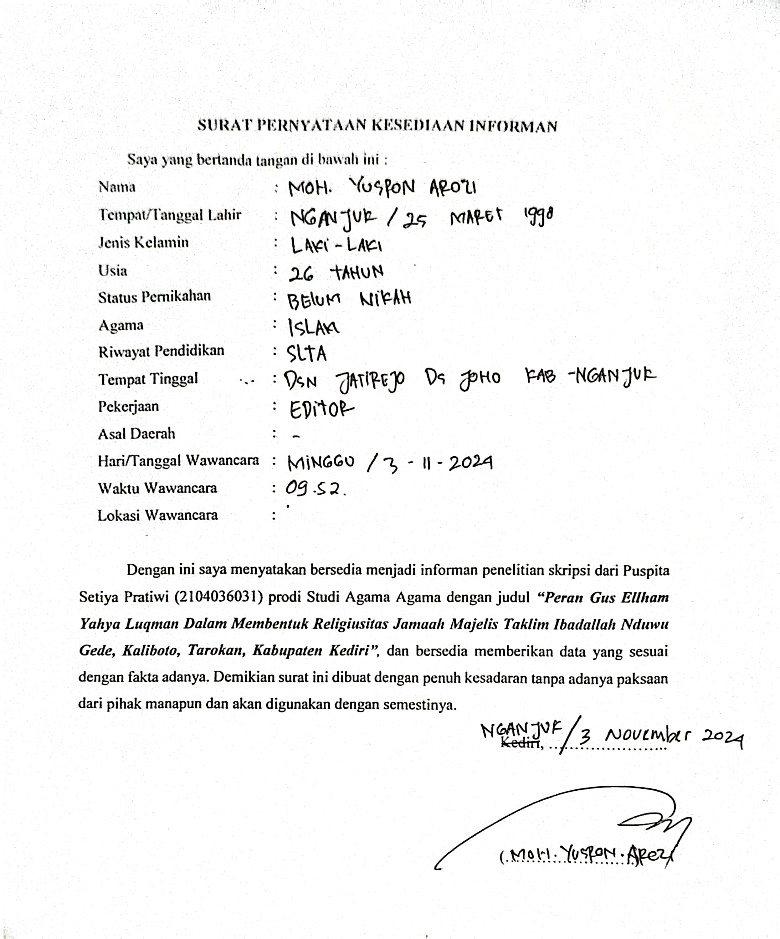 SURAT PERNYATAAN KESEDIAAN INFORMAN
Saya yang bertanda tangan di bawah ini :
Nama : MOH. YUSRON AROZI
Tempat/Tanggal Lahir : NGANJUK / 25 MARET 1998
Jenis Kelamin : LAKI - LAKI
Usia : 26 TAHUN
Status Pernikahan : BELUM NIKAH
Agama : ISLAM
Riwayat Pendidikan : SLTA
Tempat Tinggal : DSN JATIREJO DS JOHO KAB - NGANJUK
Pekerjaan : EDITOR
Asal Daerah : -
Hari/Tanggal Wawancara : MINGGU / 3 - 11 - 2024
Waktu Wawancara : 09.52.
Lokasi Wawancara :
Dengan ini saya menyatakan bersedia menjadi informan penelitian skripsi dari Puspita
Setiya Pratiwi (2104036031) prodi Studi Agama Agama dengan judul "Peran Gus Ellham
Yahya Luqman Dalam Membentuk Religiusitas Jamaah Majelis Taklim Ibadallah Nduwu
Gede, Kaliboto, Tarokan, Kabupaten Kediri", dan bersedia memberikan data yang sesuai
dengan fakta adanya. Demikian surat ini dibuat dengan penuh kesadaran tanpa adanya paksaan
dari pihak manapun dan akan digunakan dengan semestinya.
NGANJUK / 3 NOVEMBER 2024
Kediri, ......................
(.MOH. YUSRON. AROZI